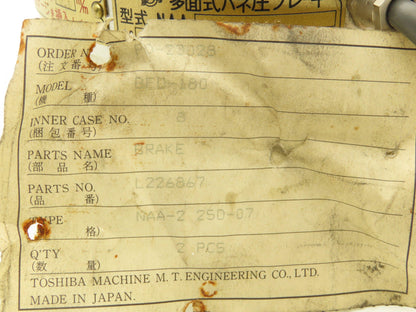 多面式バネ圧ブレーキ
型式 NAA-
ORDER NO.
(注文番号)
MODEL
(機 種)
INNER CASE NO. 8
(梱包番号)
PARTS NAME BRAKE
(部品名)
PARTS NO. L226867
(品 番)
NAA-2 250-07
格)
Q'TY 2 PCS
(数 量)
TOSHIBA MACHINE M.T. ENGINEERING CO., LTD.
MADE IN JAPAN.